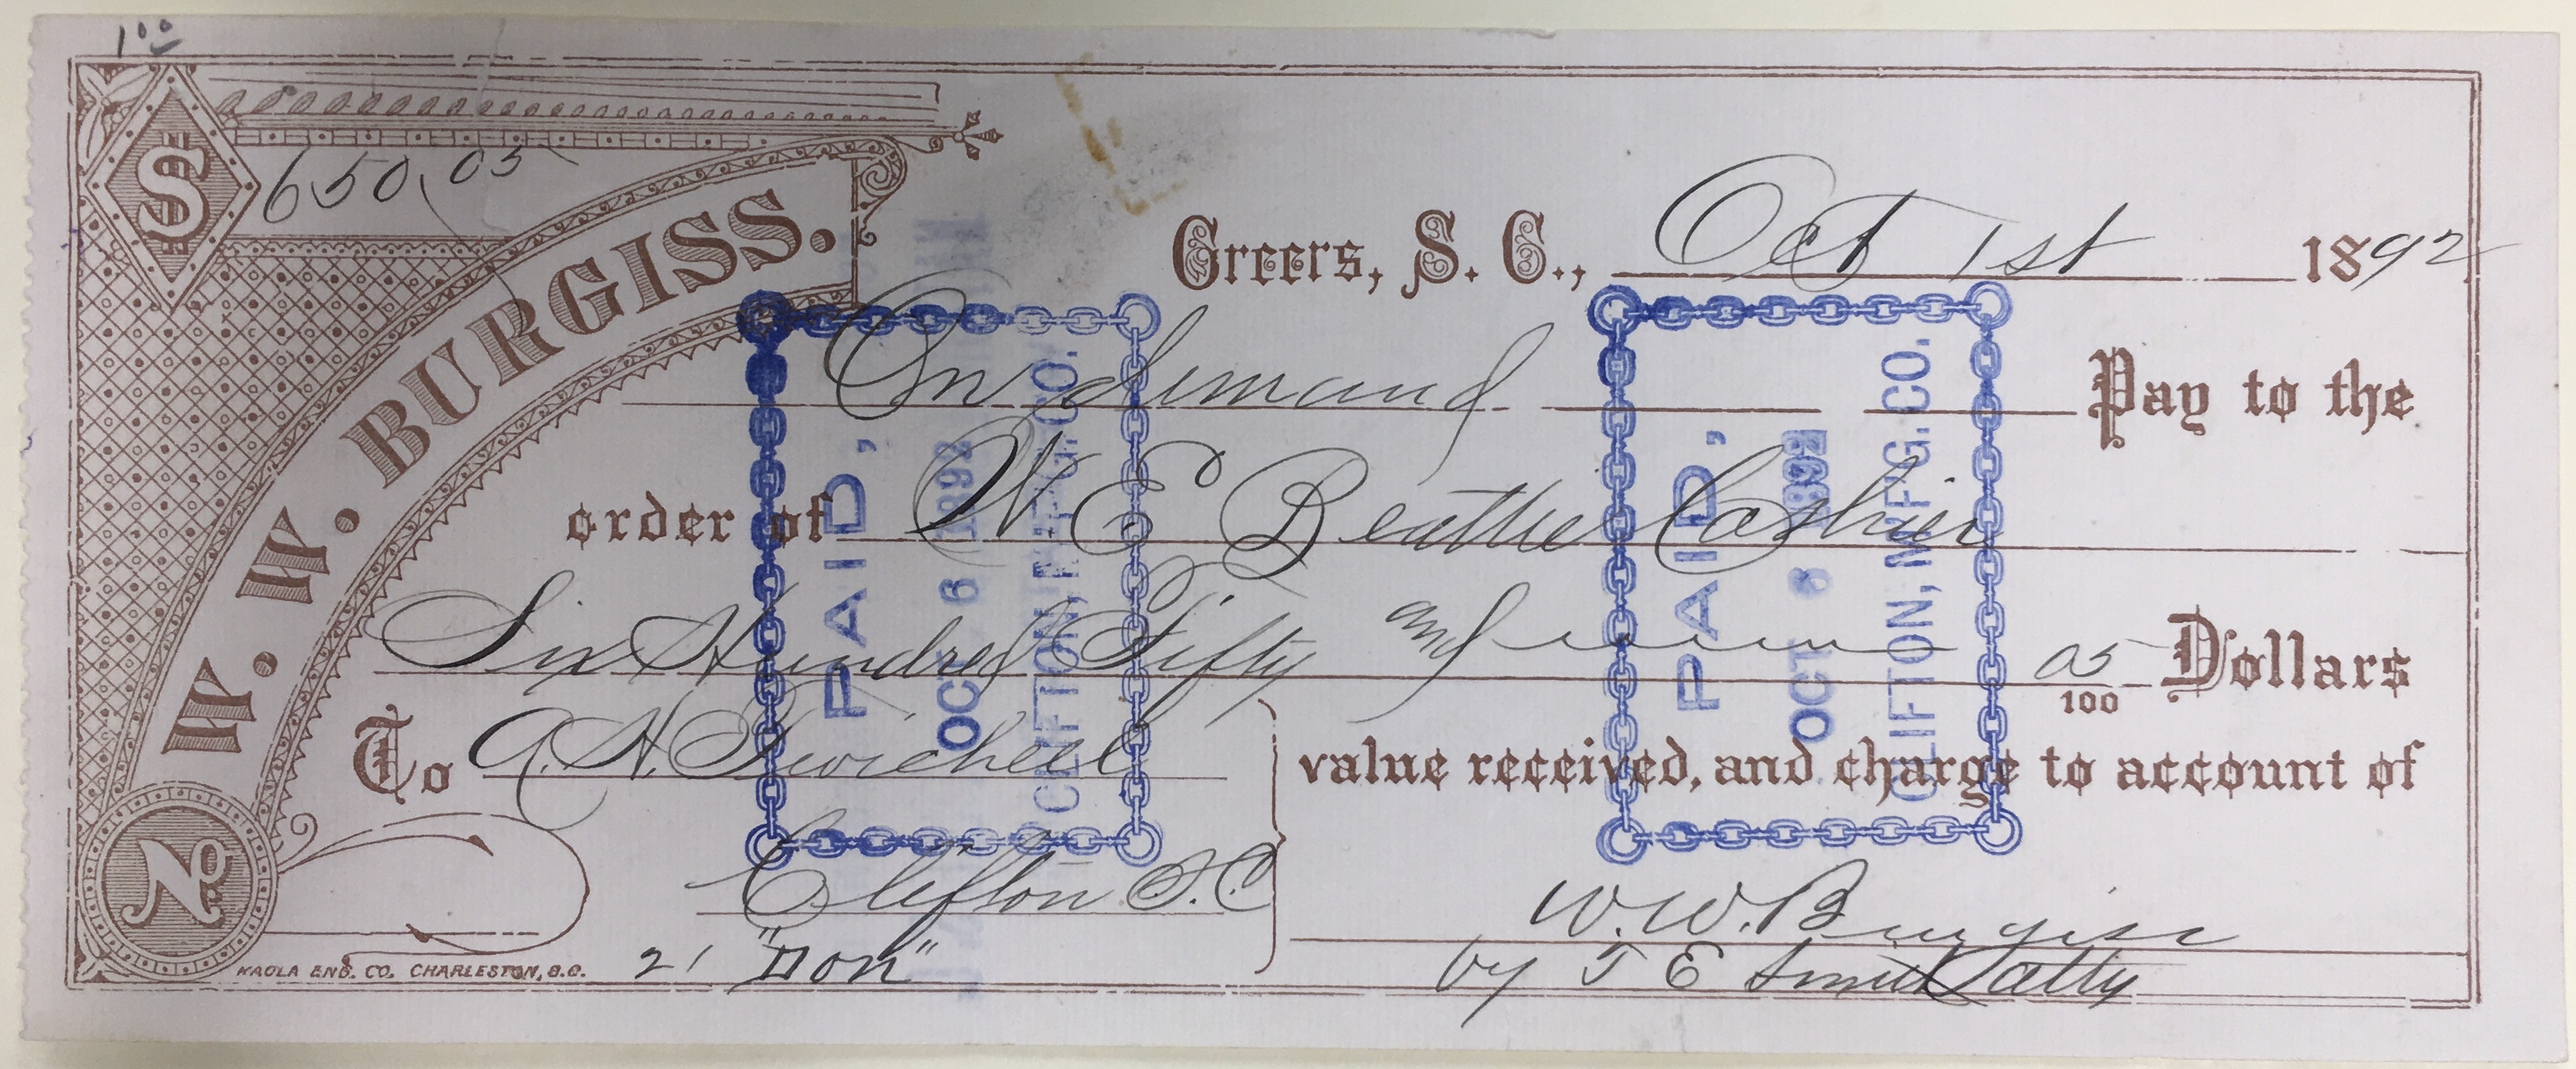 1 00
$ 650,05
W. W. BURGISS.
Greers, S. C., Oct 1st 1892
On demand Pay to the
order of W E Beattie Cashier
Six Hundred Fifty and 05/100 Dollars
To A. H. Twichell
value received, and charge to account of
Clifton S.C
No
W. W. Burgiss
by T E Smith atty
KAOLA ENG. CO. CHARLESTON, S.C.
21 "Don"
PAID,
OCT 6 1892
CLIFTON, M'F'G. CO.
PAID,
OCT 6 1892
CLIFTON, M'F'G. CO.